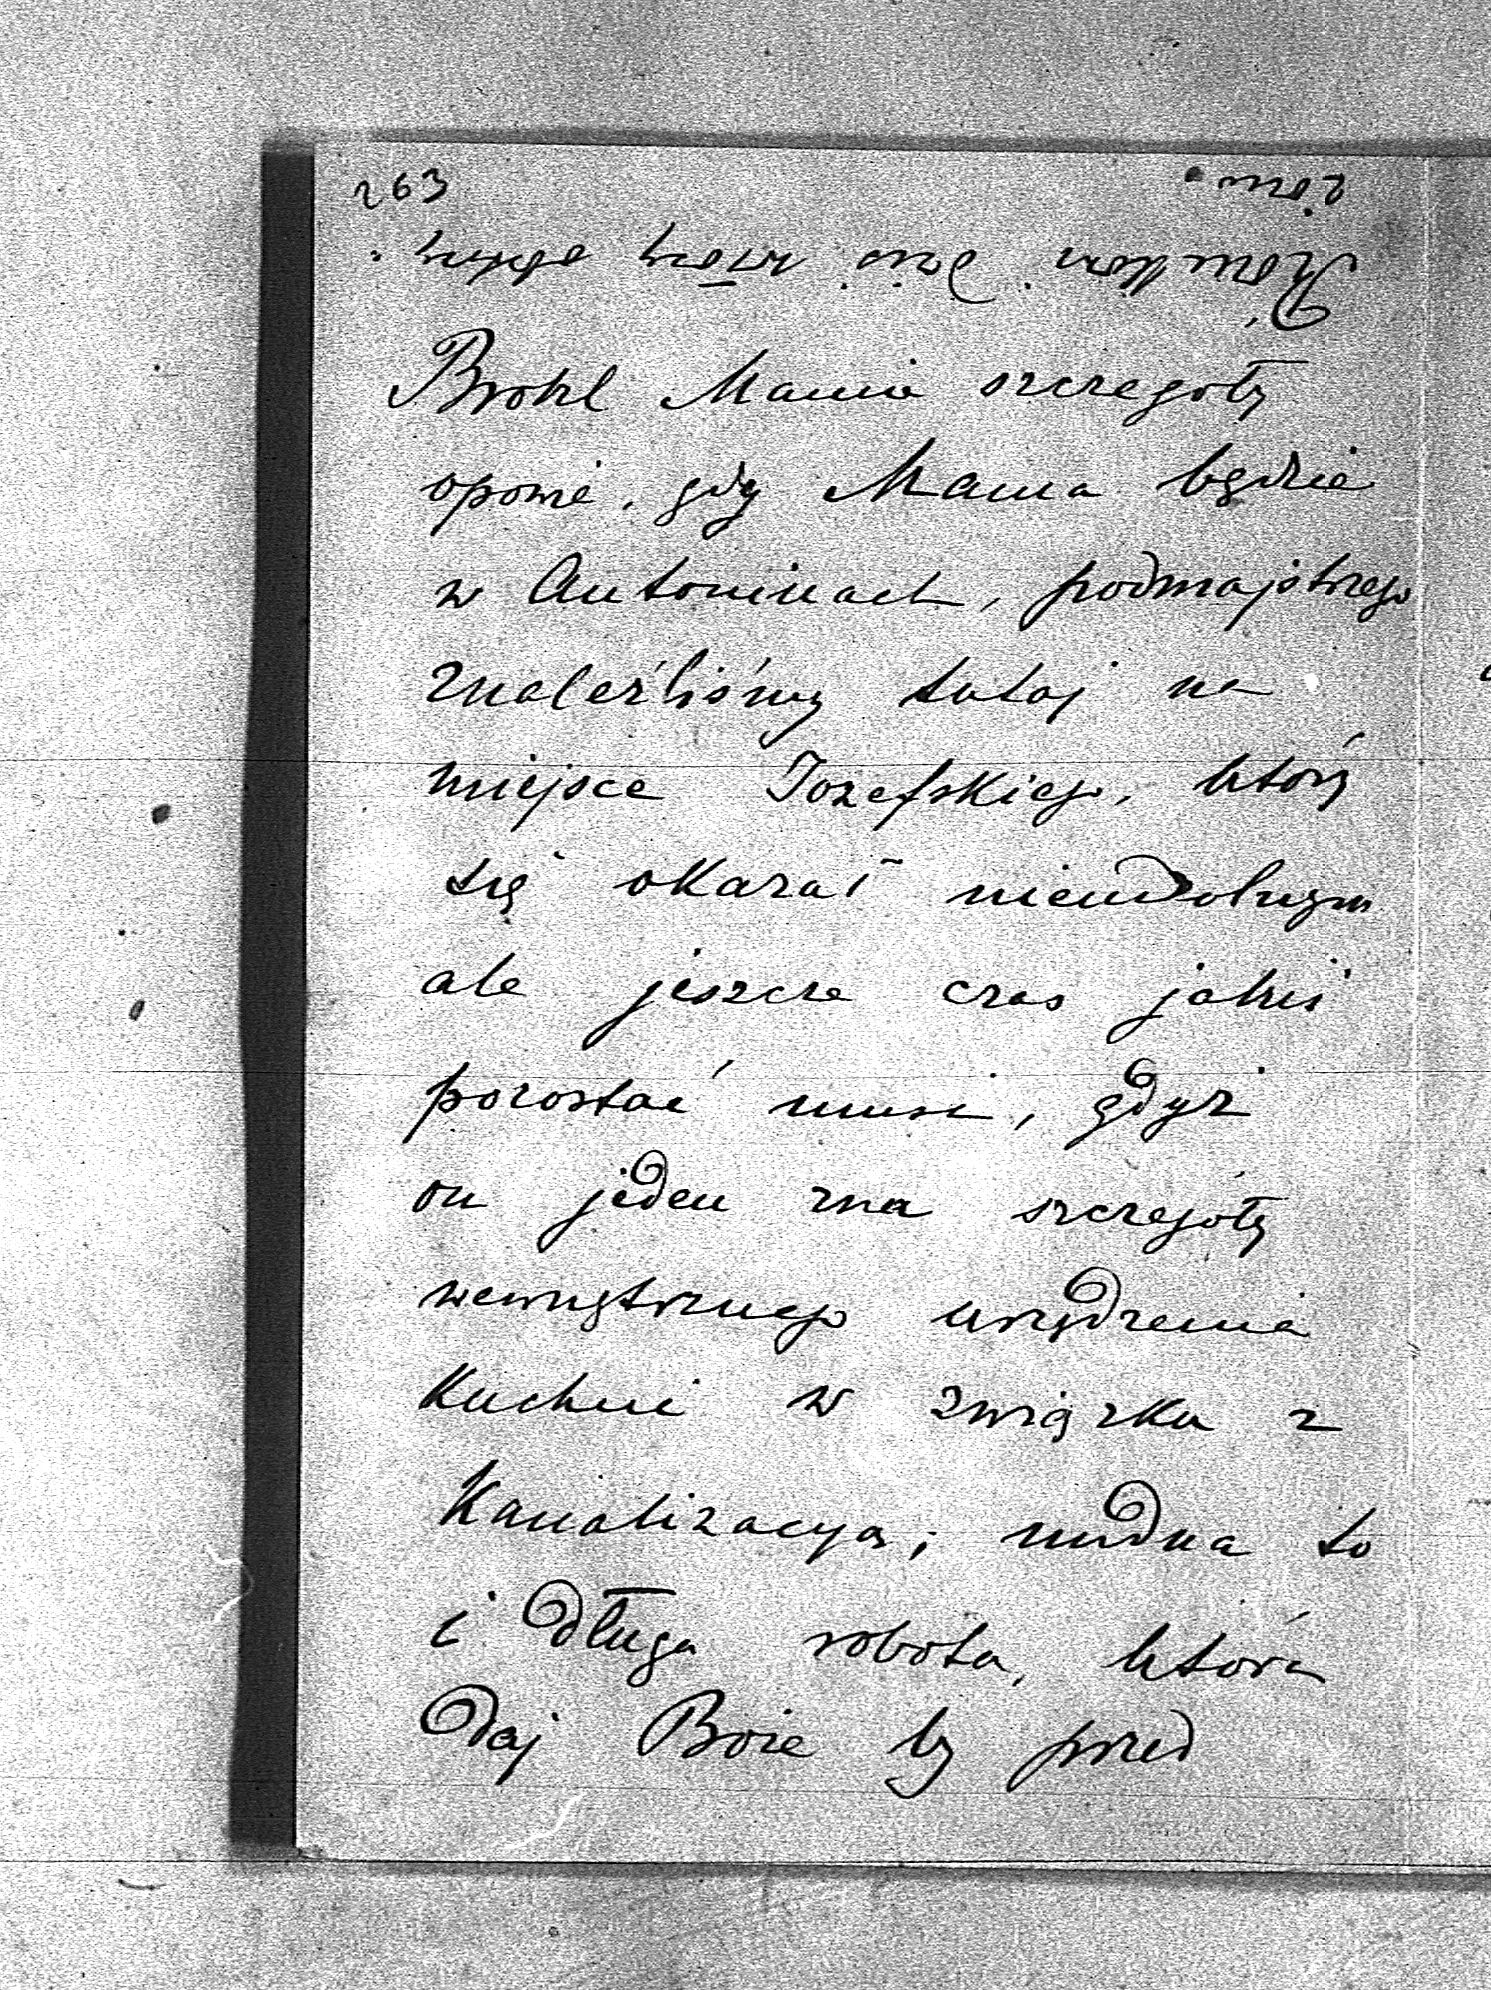 263
Brohl Mamie szczegóły
opowie, gdy Mama będzie
w Antoninach, podmajstrego
znaleźliśmy tutaj na
miejsce Jozefskiego, który
się okazał nieudolnym
ale jeszcze czas jakiś
pozostać musi, gdyż
on jeden zna szczegóły
wewnętrznego urządzenia
kuchni w związku z
Kanalizacyą; nudna to
i długa robota, która
daj Boże by przed